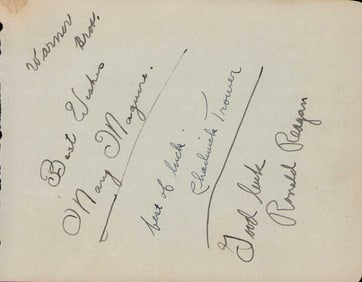 Warner
Bros.
Best Wishes
Mary Maguire.
best of luck.
Chadwick Trower
Good luck
Ronald Reagan